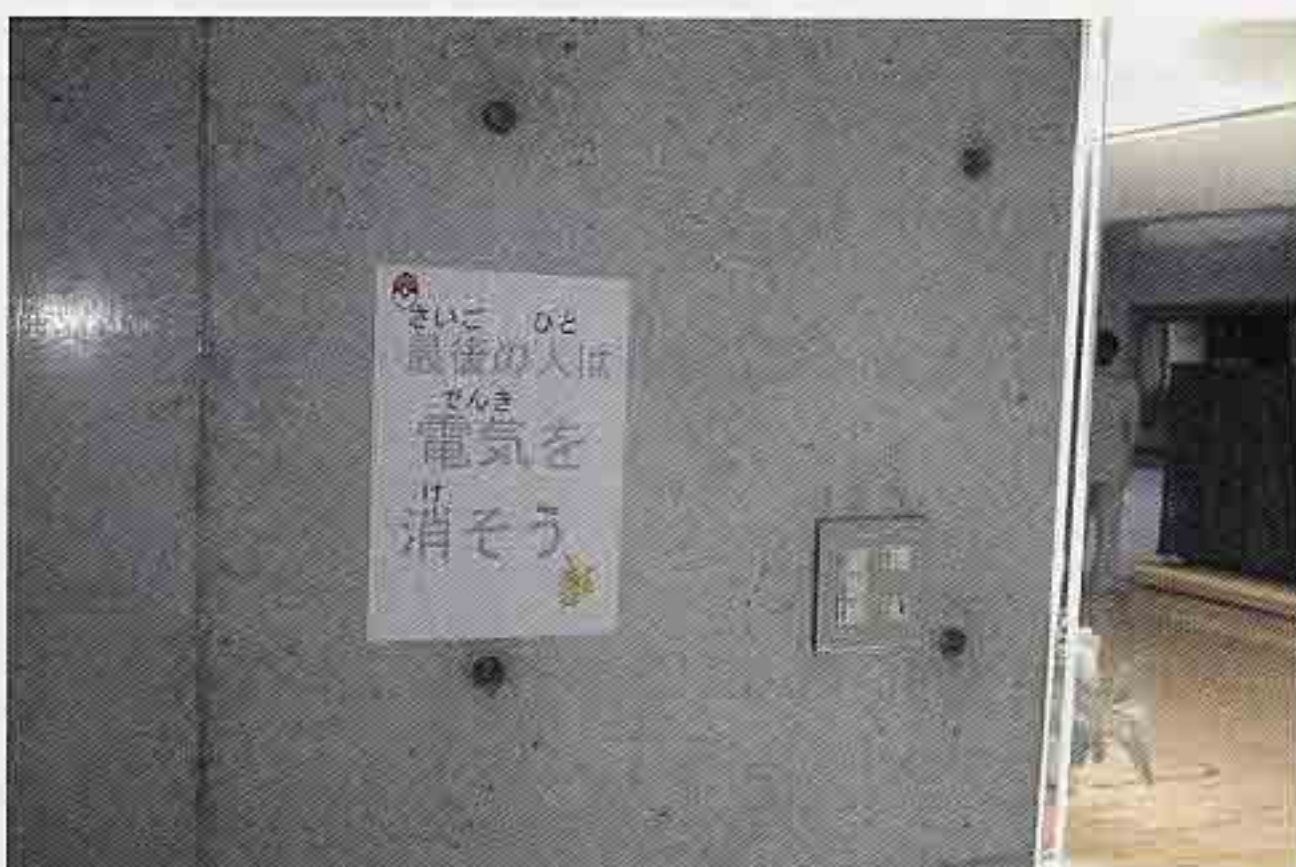 さいご ひと
最後の人は
でんき
電気を
け
消そう